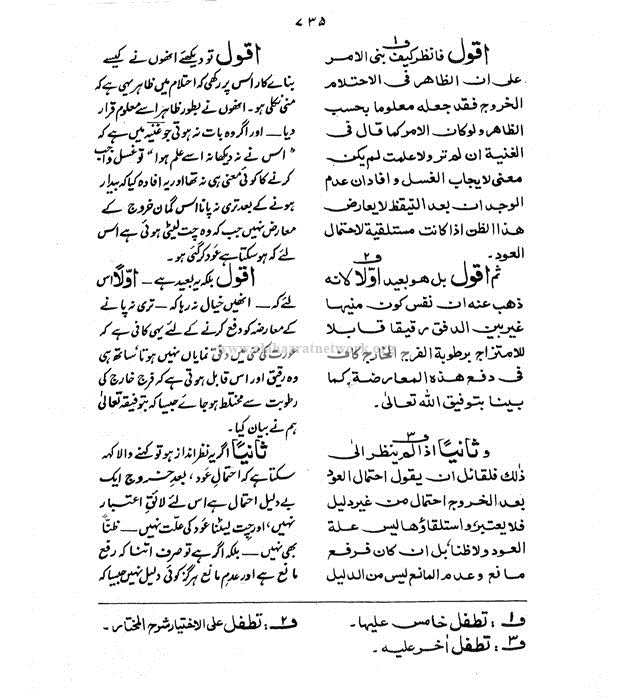 ۷۳۵
اقول فانظر کیف بنی الامر
علی ان الظاهر فی الاحتلام
الخروج فقد جعله معلوما بحسب
الظاهر و لو کان الامر کما قال فی
الغنیة ان لم تر ولا علمت لم یکن
معنی لایجاب الغسل و افاد ان عدم
الوجدان بعد التیقظ لا یعارض
هذا الظن اذا کانت مستلقیة لاحتمال
العود۔
ثم اقول بل هو بعید اوّلا لانه
ذهب عنه ان نفس کون منیها
غیر بین الدفق رقیقا قابلا
للامتزاج برطوبة الفرج الخارج کاف
فی دفع هذه المعارضة کما
بینا بتوفیق الله تعالٰی۔
و ثانیًا اذا لم ینظر الی
ذلك فلقائل ان یقول احتمال العود
بعد الخروج احتمال من غیر دلیل
فلا یعتبر و استلقاؤها لیس علة
العود ولا ظنا بل ان کان فرفع
مانع و عدم المانع لیس من الدلیل
اقول تو دیکھئے انھوں نے کیسے
بنائے کار اس پر رکھی کہ احتلام میں ظاہر یہی ہے کہ
منی نکلی ہو۔ انھوں نے بطور ظاہر اسے معلوم قرار
دیا — اور اگر وہ بات نہ ہوتی جو غنیہ میں ہے کہ
"اس نے نہ دیکھا نہ اسے علم ہوا" تو غسل واجب
کرنے کا کوئی معنی ہی نہ تھا اور یہ افادہ کیا کہ بیدار
ہونے کے بعد تری نہ پانا اس گمان خروج کے
معارض نہیں جب کہ وہ چت لیٹی ہوئی ہے اس
لئے کہ ہوسکتا ہے عود کر گئی ہو۔
اقول بلکہ یہ بعید ہے — اولاً اس
لئے کہ — انھیں خیال نہ رہا کہ — تری نہ پانے
کے معارضہ کو دفع کرنے کے لئے یہی کافی ہے کہ
عورت کی منی میں دفق نمایاں نہیں ہوتا ساتھ ہی
وہ رقیق اور اس قابل ہوتی ہے کہ فرج خارج کی
رطوبت سے مختلط ہو جائے جیسا کہ بتوفیقہ تعالٰی
ہم نے بیان کیا۔
ثانیًا اگر یہ نظر انداز ہو تو کہنے والا کہہ
سکتا ہے کہ احتمالِ عود، بعدِ خروج ایک
بے دلیل احتمال ہے اس لئے لائقِ اعتبار
نہیں، اور چت لیٹنا عود کی علّت نہیں — ظنًّا
بھی نہیں — بلکہ اگر ہے تو صرف اتنا کہ رفع
مانع ہے اور عدمِ مانع ہرگز کوئی دلیل نہیں جیسا کہ
ف۱: تطفل خامس علیها۔
ف۲: تطفل علی الاختیار شرح المختار۔
ف۳: تطفل اٰخر علیه۔